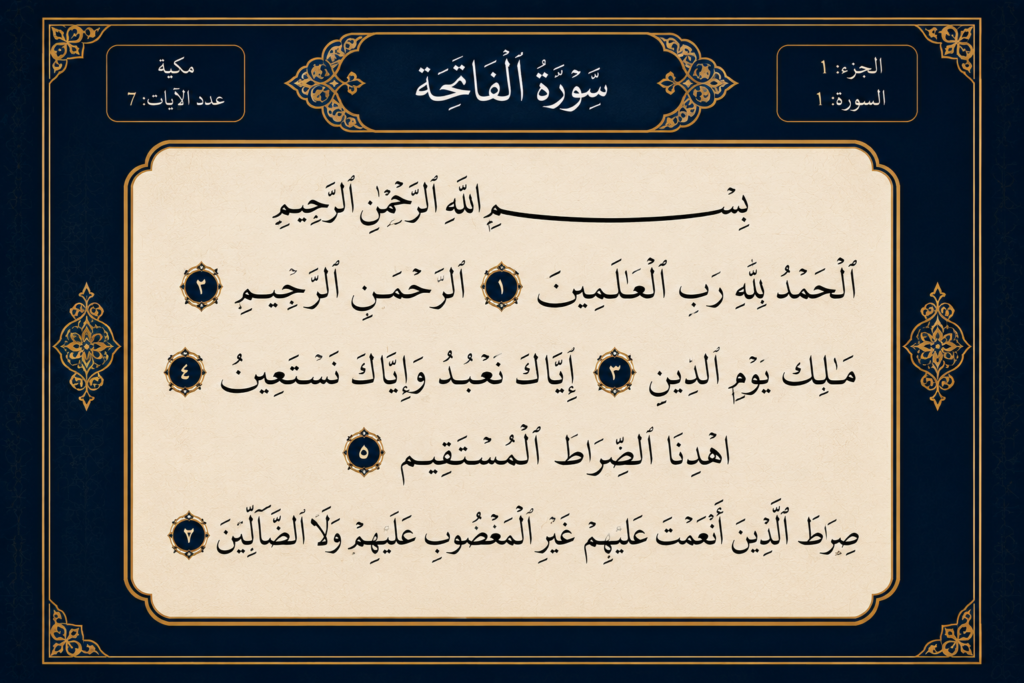 الجزء: 1
السورة: 1
سِّوْرَّةُ ٱلْفَاتَحِة
مكية
عدد الآيات: 7
بِسْمِ اللَّهِ ٱلرَّحْمَٰنِ ٱلرَّجِيمِ
ٱلْحَمْدُ لِلَّهِ رَبِ ٱلْعَٰلَمِينَ ١ ٱلرَّحْمَـنِ ٱلرَّجِيمِ ٢
مَٰلِك يَوْمِ ٱلدِينِ ٣ إِيَّاكَ نَعْبُدُ وَإِيَّاكَ نَسْتَعِينُ ٤
اهْدِنَا ٱلصِّرَاطَ ٱلْمُسْتَقِيم ٥
صِرَاطَ ٱلَّذِينَ أَنْعَمْتَ عَلَيْهِمْ غَيْرِ ٱلْمَغْضُوبِ عَلَيهِمْ وَلَا ٱلضَّآلِّينَ ٧